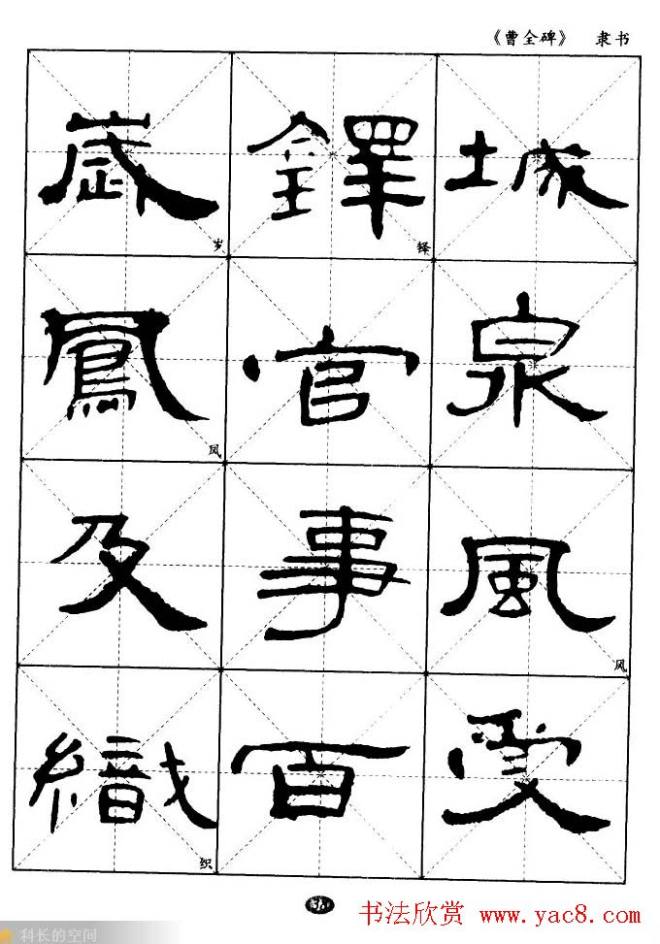 《曹全碑》 隶书
城泉風受
风
鐸官事百
铎
歲鳳及織
岁
凤
织
书法欣赏 www.yac8.com
科长的空间